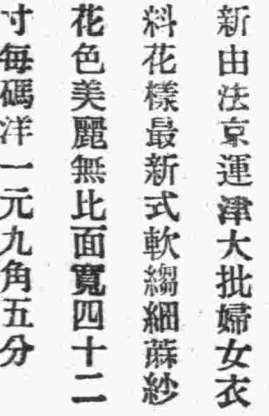 新由法京運津大批婦女衣
料花樣最新式軟縐細蔴紗
花色美麗無比面寬四十二
寸每碼洋一元九角五分